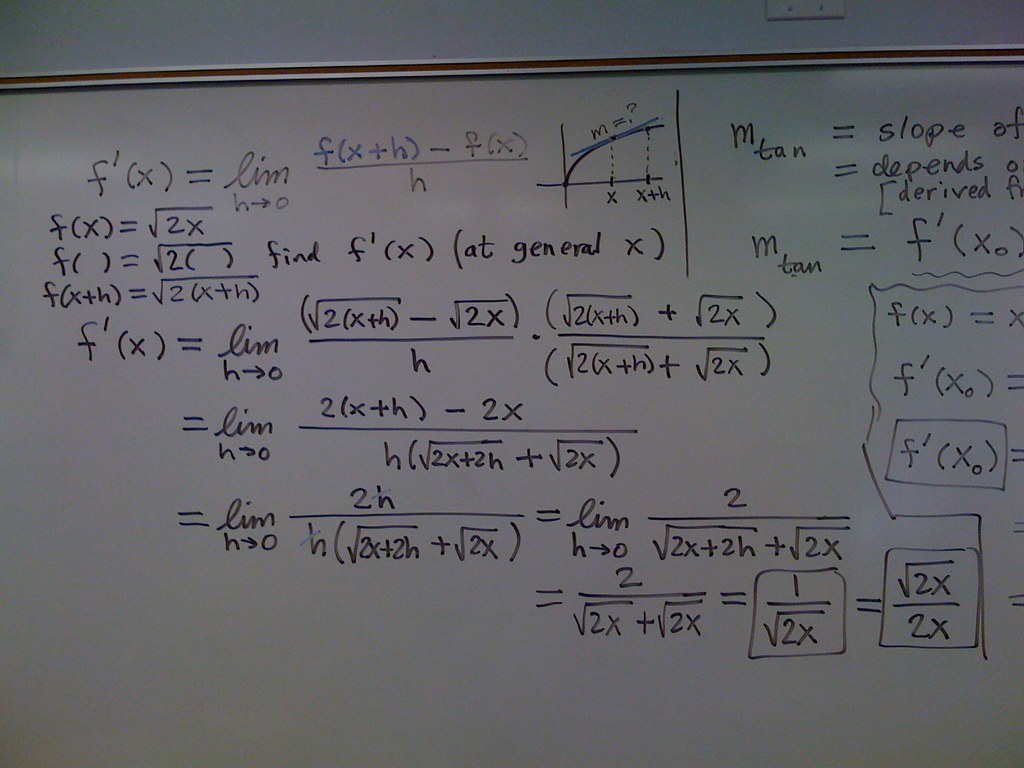 f'(x) = lim h→0 (f(x+h) − f(x)) / h
m = ?
x x+h
f(x) = √2x
f( ) = √2( ) find f'(x) (at general x)
f(x+h) = √2(x+h)
f'(x) = lim h→0 (√2(x+h) − √2x) / h · (√2(x+h) + √2x) / (√2(x+h) + √2x)
= lim h→0 (2(x+h) − 2x) / h(√2x+2h + √2x)
= lim h→0 2h / h(√2x+2h + √2x) = lim h→0 2 / (√2x+2h + √2x)
= 2 / (√2x + √2x) = 1 / √2x = √2x / 2x
m tan = slope of
= depends
[derived
m tan = f'(x₀)
f(x) = x
f'(x₀) =
f'(x₀) =
=
=